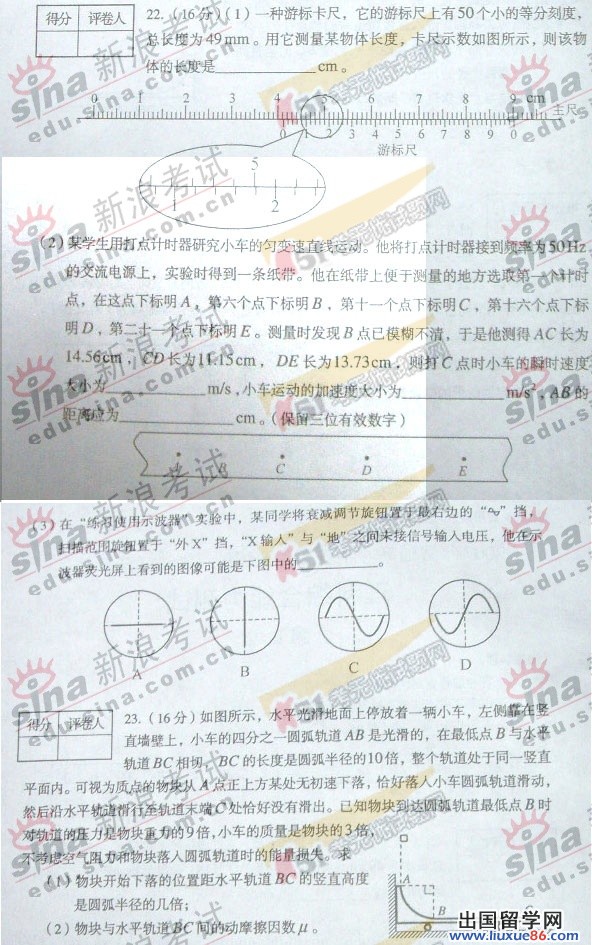 得分 评卷人
22.(16分)(1)一种游标卡尺,它的游标尺上有50个小的等分刻度,
总长度为49mm。用它测量某物体长度,卡尺示数如图所示,则该物
体的长度是____________cm。
0 1 2 3 4 5 6 7 8 9 cm
主尺
0 1 2 3 4 5 6 7 8 9 0
游标尺
5
2
(2)某学生用打点计时器研究小车的匀变速直线运动。他将打点计时器接到频率为50Hz
的交流电源上,实验时得到一条纸带。他在纸带上便于测量的地方选取第一个计时
点,在这点下标明A,第六个点下标明B,第十一个点下标明C,第十六个点下标
明D,第二十一个点下标明E。测量时发现B点已模糊不清,于是他测得AC长为
14.56cm,CD长为11.15cm,DE长为13.73cm,则打C点时小车的瞬时速度
大小为____________m/s,小车运动的加速度大小为____________m/s²,AB的
距离应为____________cm。(保留三位有效数字)
A B C D E
(3)在“练习使用示波器”实验中,某同学将衰减调节旋钮置于最右边的“∿”挡,
扫描范围旋钮置于“外X”挡,“X输入”与“地”之间未接信号输入电压,他在示
波器荧光屏上看到的图像可能是下图中的____________。
A B C D
得分 评卷人
23.(16分)如图所示,水平光滑地面上停放着一辆小车,左侧靠在竖
直墙壁上,小车的四分之一圆弧轨道AB是光滑的,在最低点B与水平
轨道BC相切,BC的长度是圆弧半径的10倍,整个轨道处于同一竖直
平面内。可视为质点的物块从A点正上方某处无初速下落,恰好落入小车圆弧轨道滑动,
然后沿水平轨道滑行至轨道末端C处恰好没有滑出。已知物块到达圆弧轨道最低点B时
对轨道的压力是物块重力的9倍,小车的质量是物块的3倍,
不考虑空气阻力和物块落入圆弧轨道时的能量损失。求
(1)物块开始下落的位置距水平轨道BC的竖直高度
是圆弧半径的几倍;
(2)物块与水平轨道BC间的动摩擦因数μ。
A
B
sina 新浪考试
edu.sina.com.cn
K51考元批试题网
出国留学网
www.liuxue86.com